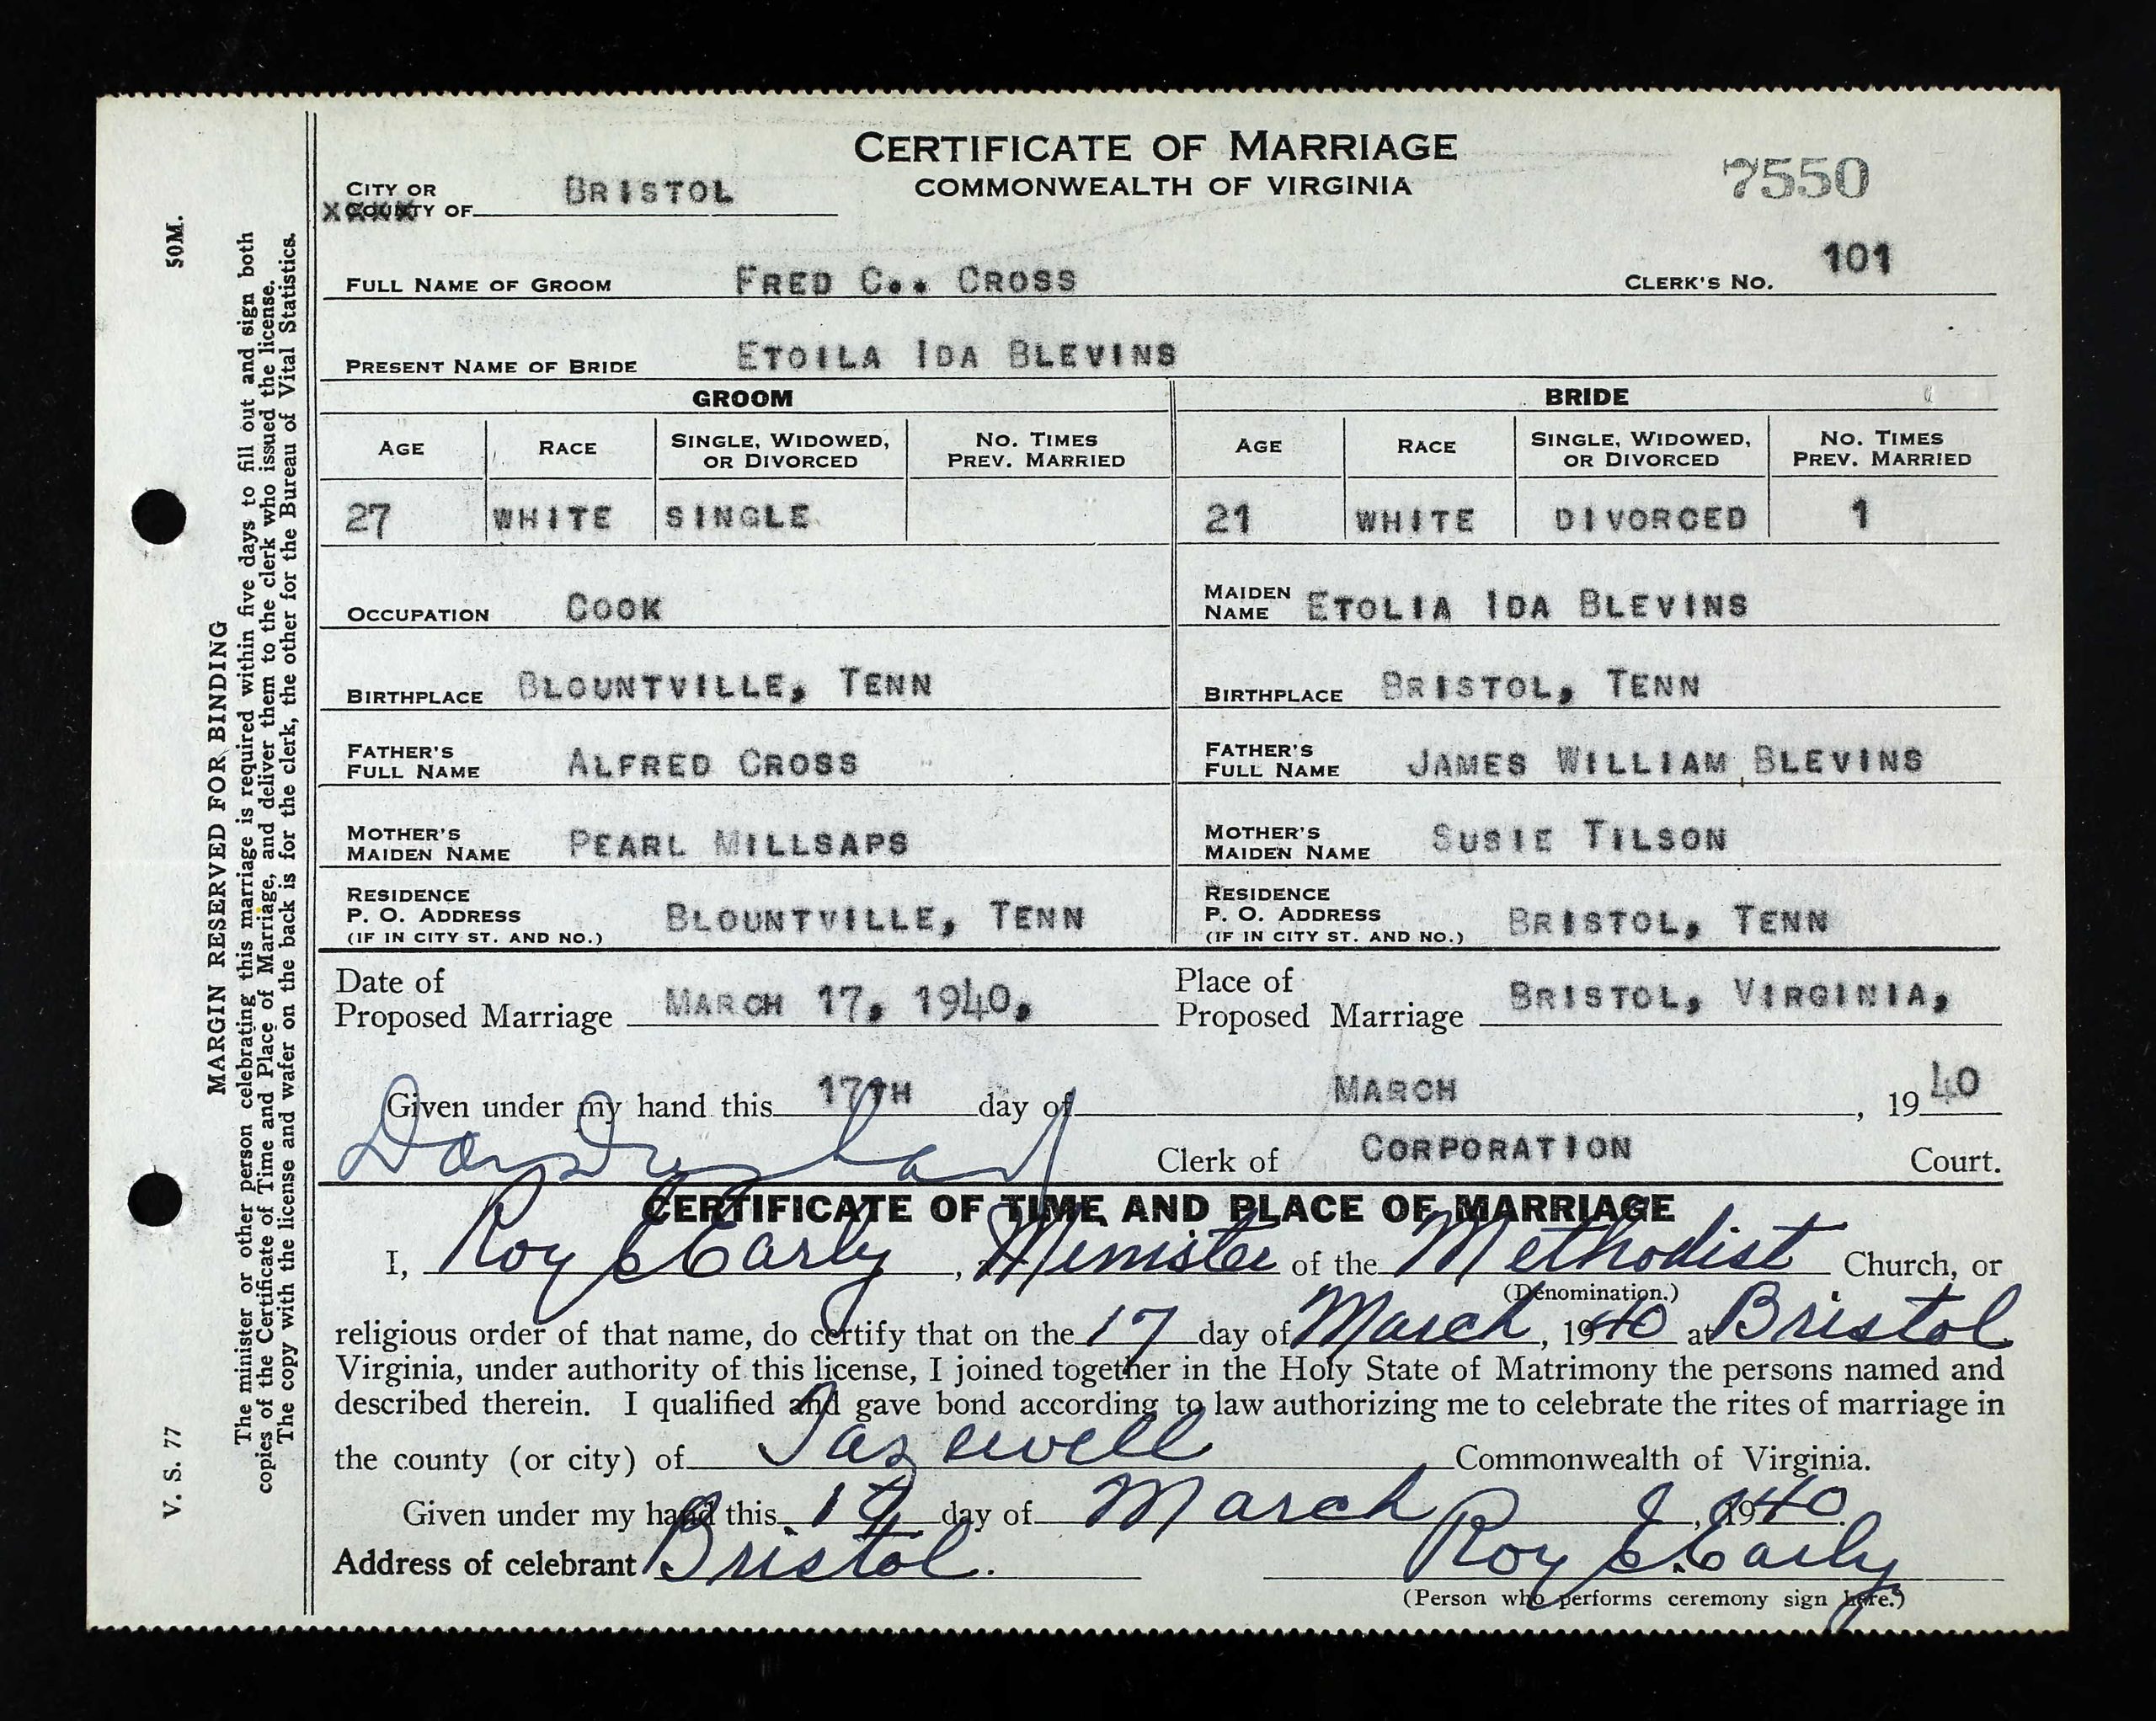 CERTIFICATE OF MARRIAGE
COMMONWEALTH OF VIRGINIA
7550
CITY OR BRISTOL
XXXX COUNTY OF
FULL NAME OF GROOM FRED C.. CROSS CLERK'S NO. 101
PRESENT NAME OF BRIDE ETOILA IDA BLEVINS
GROOM BRIDE
AGE RACE SINGLE, WIDOWED, OR DIVORCED NO. TIMES PREV. MARRIED AGE RACE SINGLE, WIDOWED, OR DIVORCED NO. TIMES PREV. MARRIED
27 WHITE SINGLE 21 WHITE DIVORCED 1
OCCUPATION COOK MAIDEN NAME ETOLIA IDA BLEVINS
BIRTHPLACE BLOUNTVILLE, TENN BIRTHPLACE BRISTOL, TENN
FATHER'S FULL NAME ALFRED CROSS FATHER'S FULL NAME JAMES WILLIAM BLEVINS
MOTHER'S MAIDEN NAME PEARL MILLSAPS MOTHER'S MAIDEN NAME SUSIE TILSON
RESIDENCE P. O. ADDRESS (IF IN CITY ST. AND NO.) BLOUNTVILLE, TENN RESIDENCE P. O. ADDRESS (IF IN CITY ST. AND NO.) BRISTOL, TENN
Date of Proposed Marriage MARCH 17, 1940, Place of Proposed Marriage BRISTOL, VIRGINIA,
Given under my hand this 17TH day of MARCH, 1940
Clerk of CORPORATION Court.
CERTIFICATE OF TIME AND PLACE OF MARRIAGE
I, Roy Early, Minister of the Methodist Church, or
(Denomination.)
religious order of that name, do certify that on the 17 day of March, 1940 at Bristol
Virginia, under authority of this license, I joined together in the Holy State of Matrimony the persons named and
described therein. I qualified and gave bond according to law authorizing me to celebrate the rites of marriage in
the county (or city) of Tazewell Commonwealth of Virginia.
Given under my hand this 17 day of March, 1940.
Address of celebrant Bristol. Roy Early
(Person who performs ceremony sign here.)
MARGIN RESERVED FOR BINDING
The minister or other person celebrating this marriage is required within five days to fill out and sign both
copies of the Certificate of Time and Place of Marriage, and deliver them to the clerk who issued the license.
The copy with the license and wafer on the back is for the clerk, the other for the Bureau of Vital Statistics.
V. S. 77 50M.